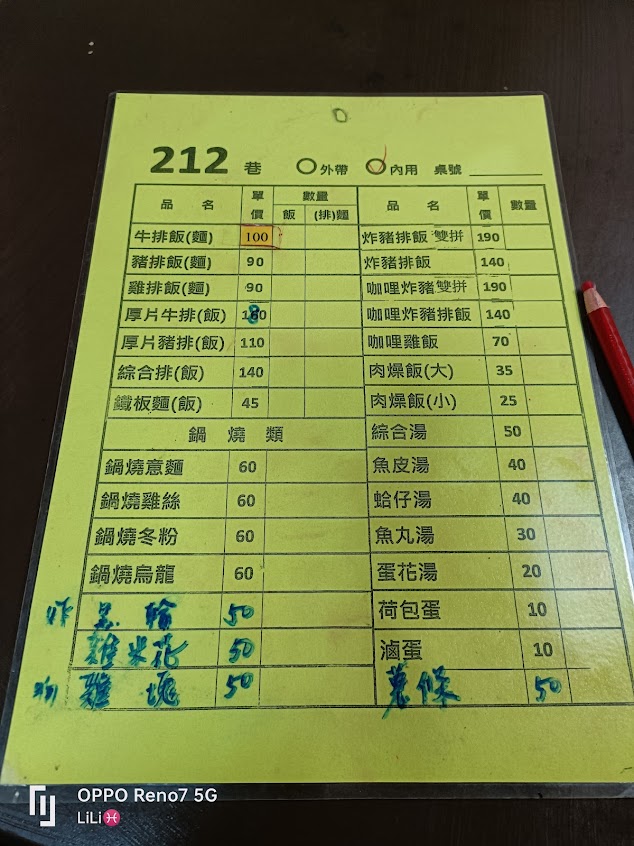 212 巷 外帶 內用 桌號
品名 單價 數量 飯 (排)麵
牛排飯(麵) 100
豬排飯(麵) 90
雞排飯(麵) 90
厚片牛排(飯) 180
厚片豬排(飯) 110
綜合排(飯) 140
鐵板麵(飯) 45
鍋燒類
鍋燒意麵 60
鍋燒雞絲 60
鍋燒冬粉 60
鍋燒烏龍 60
炸 黑輪 50
雞米花 50
雞塊 50
品名 單價 數量
炸豬排飯 雙拼 190
炸豬排飯 140
咖哩炸豬雙拼 190
咖哩炸豬排飯 140
咖哩雞飯 70
肉燥飯(大) 35
肉燥飯(小) 25
綜合湯 50
魚皮湯 40
蛤仔湯 40
魚丸湯 30
蛋花湯 20
荷包蛋 10
滷蛋 10
薯條 50
OPPO Reno7 5G
LiLi♓